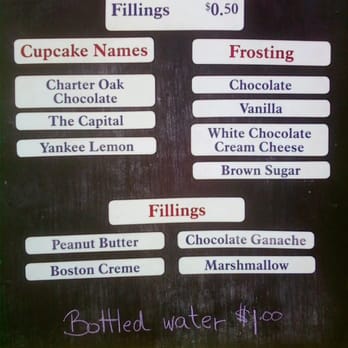 Fillings $0.50
Cupcake Names
Charter Oak
Chocolate
The Capital
Yankee Lemon
Frosting
Chocolate
Vanilla
White Chocolate
Cream Cheese
Brown Sugar
Fillings
Peanut Butter
Boston Creme
Chocolate Ganache
Marshmallow
Bottled water $1.00